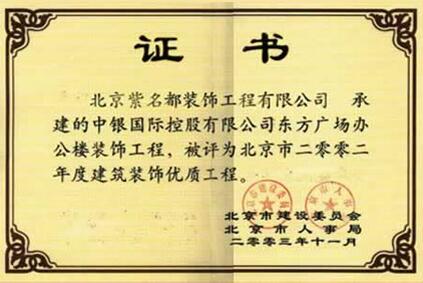 证书
北京紫名都装饰工程有限公司 承
建的中银国际控股有限公司东方广场办
公楼装饰工程，被评为北京市二零零二
年度建筑装饰优质工程。
北京市建设委员会
北京市人事局
二零零三年十一月